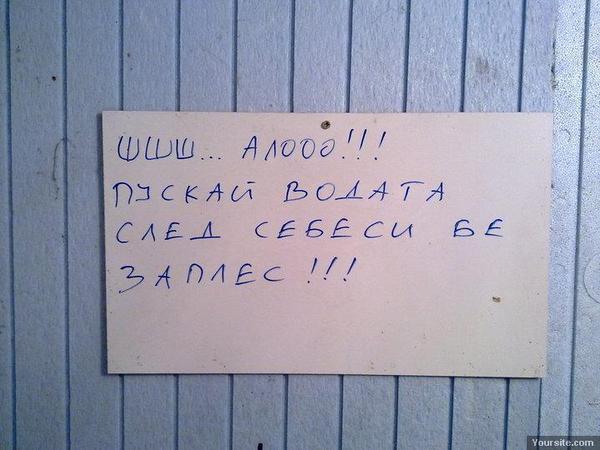 ШШШ... АЛОOО!!!
ПУСКАЙ ВОДАТА
СЛЕД СЕБЕСИ БЕ
ЗАПЛЕС!!!
Yoursite.com